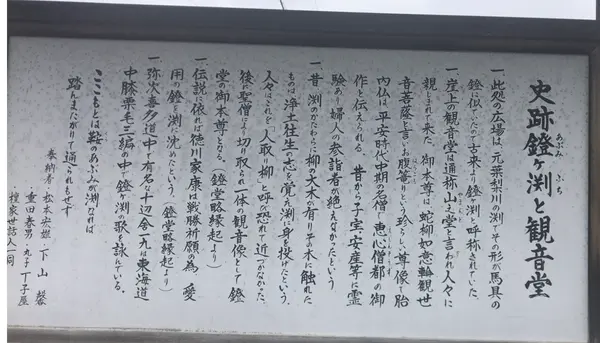 史跡鐙ヶ渕と観音堂
あぶみ
ふち
一、此処の広場は、元葉梨川の渕でその形が馬具の
鐙に似ていたので古来より鐙ヶ渕と呼称されていた。
一、崖上の観音堂は通称山の堂と言われ人々に
親しまれて来た 御本尊は、蛇柳如意輪観世
音菩薩と言いお腹篭りという珍らしい尊像で胎
内仏は平安時代中期の名僧 恵心僧都の御
作と伝えられる 昔から子宝・安産等に霊
験あり婦人の参詣者が絶えなかったという
一、昔渕のかたわらに柳の大木が有りその木に触れた
ものは浄土往生の志を覚え渕に身を投げたという。
人々はこれを「人取り柳」と呼び恐れて近づかなかった。
後に聖僧により切り取られ一体の観音像として鐙
堂の御本尊となる。(鐙堂略縁起より)
一、伝説に依れば徳川家康は戦勝祈願の為、愛
用の鐙を渕に沈めたという(鐙堂略縁起より)
一、弥次喜多道中で有名な十辺舎一九は東海道
中膝栗毛三編の中で鐙ヶ渕の歌を詠んでいる。
ここもとは鞍のあぶみが渕なれば
踏んまたがりて通られもせず
奉納者・松本央雄・下山
・重田春男・丸子丁子屋
・檀家世話人一同